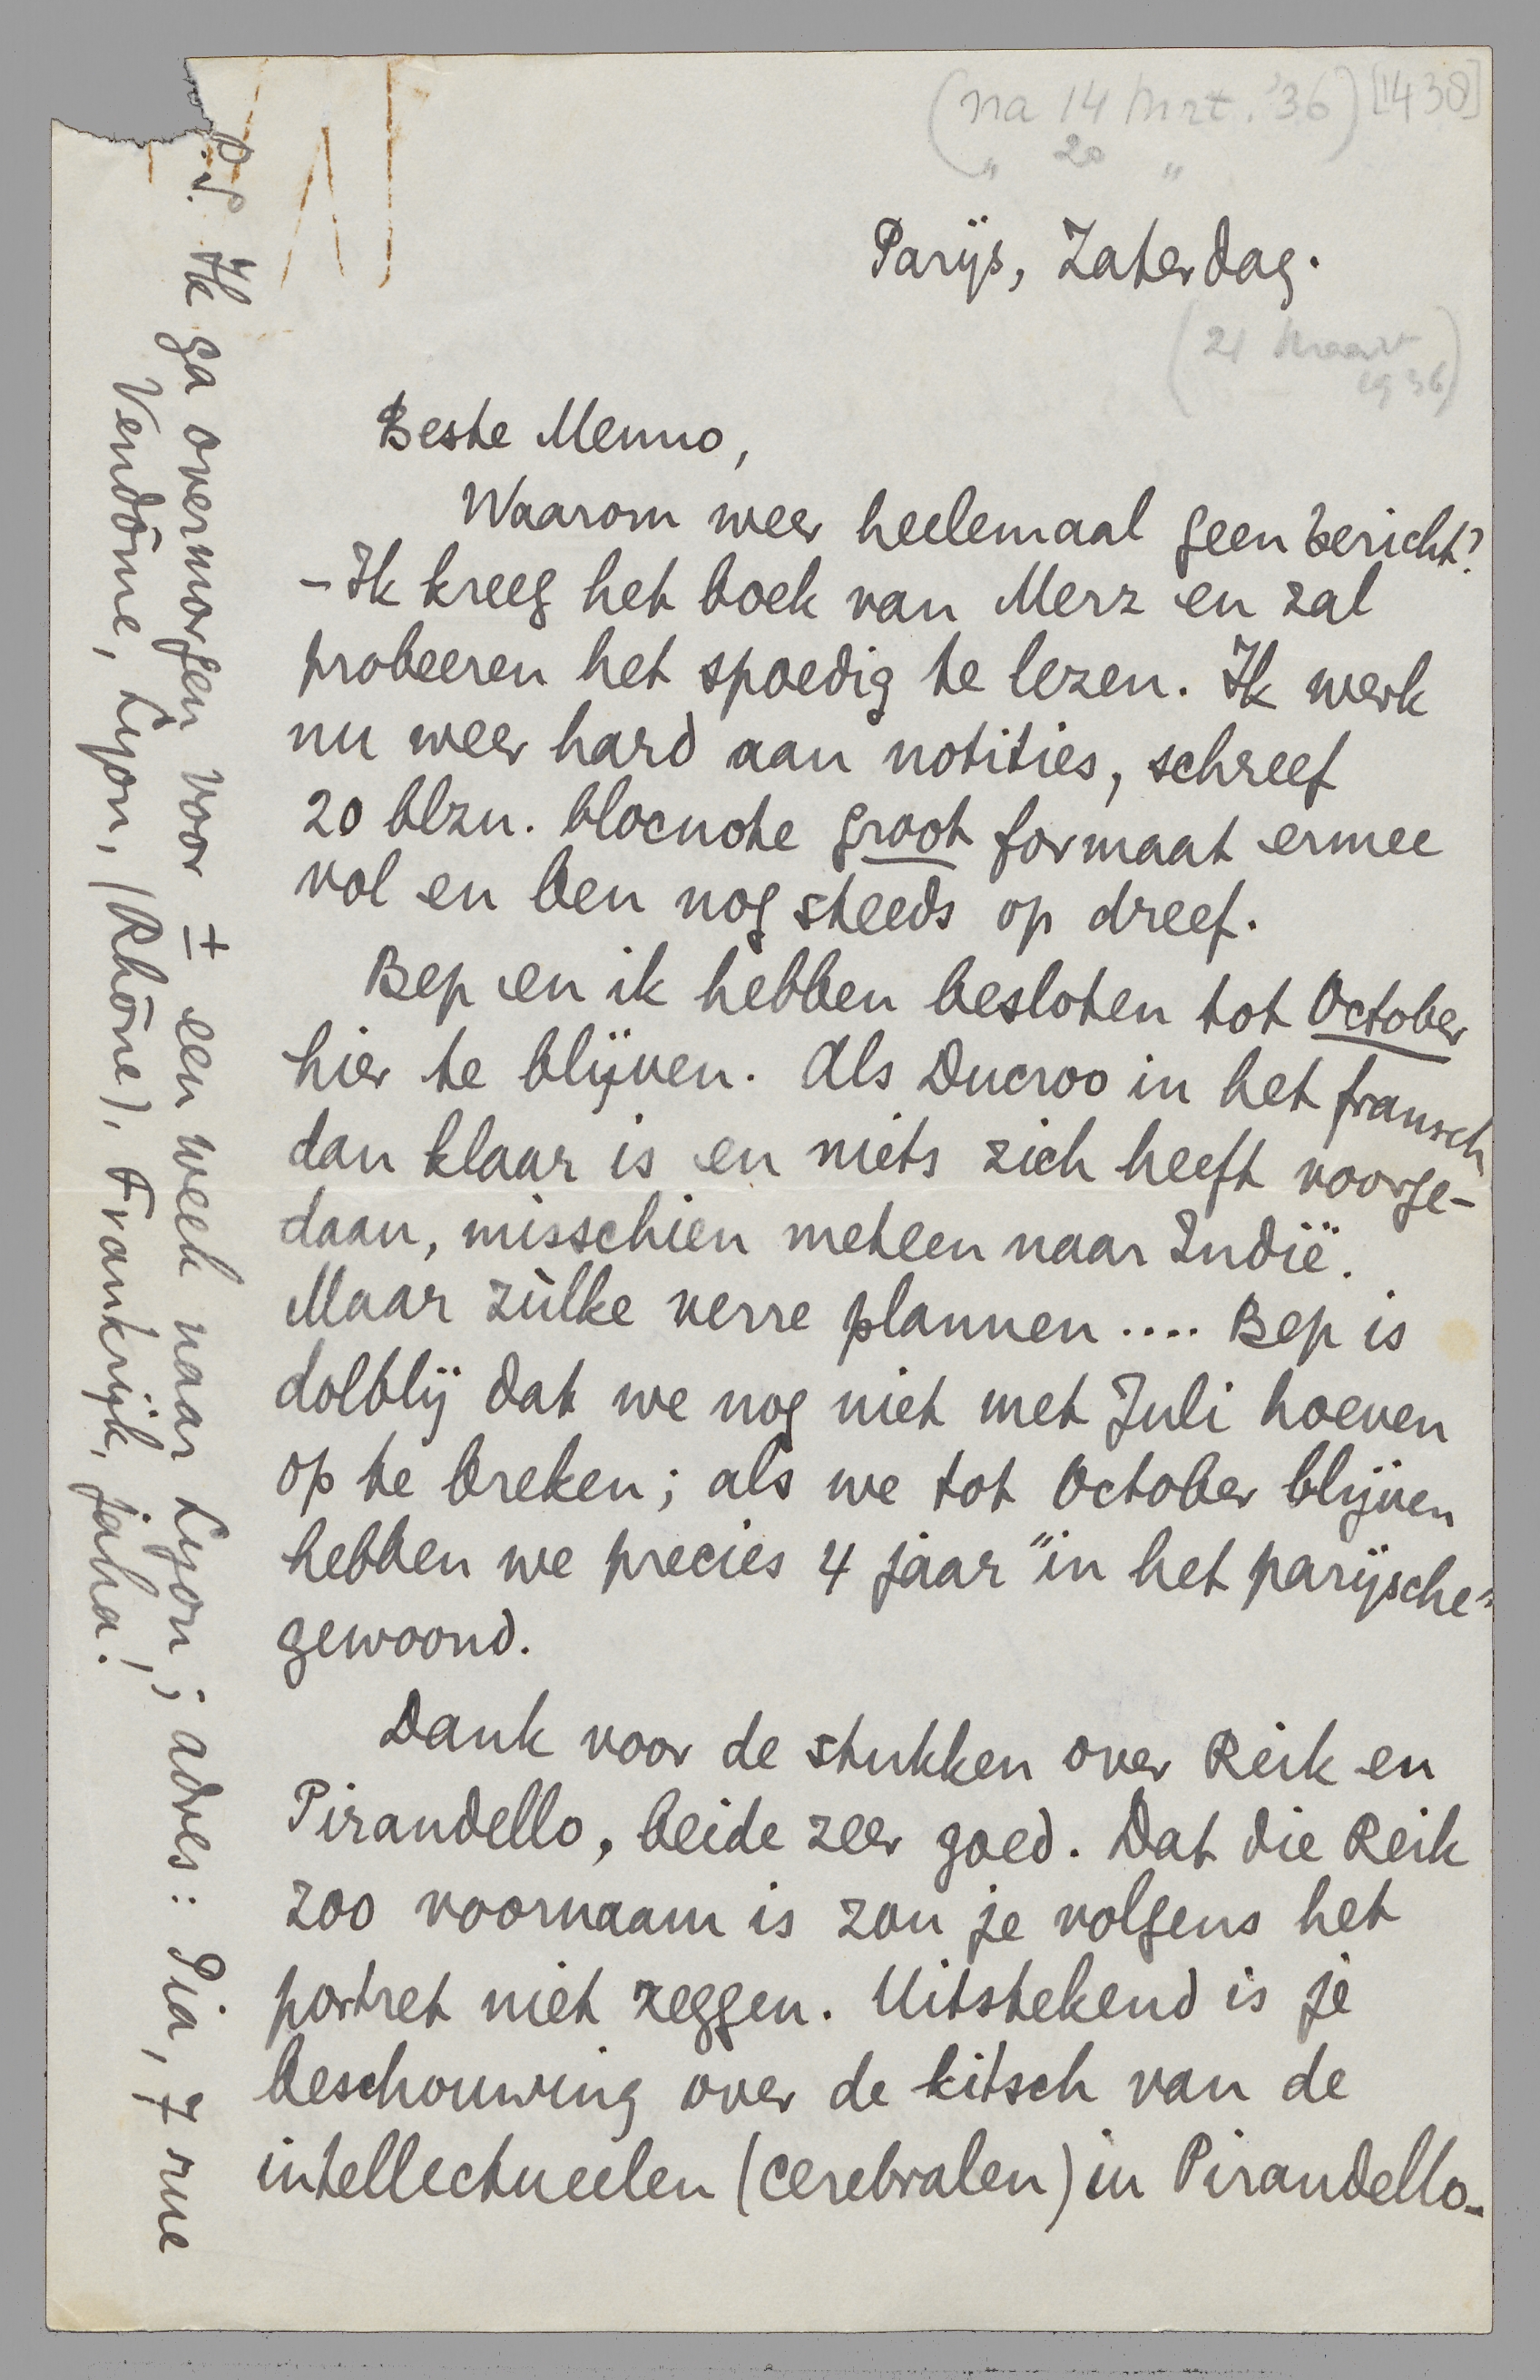 (na 14 Mrt. '36) [1438]
" 20 "
Parijs, Zaterdag.
(21 Maart
1936)
Beste Menno,
Waarom weer heelemaal geen bericht?
- Ik kreeg het boek van Merz en zal
probeeren het spoedig te lezen. Ik werk
nu weer hard aan notities, schreef
20 blzn. blocnote groot formaat ermee
vol en ben nog steeds op dreef.
Bep en ik hebben besloten tot October
hier te blijven. Als Ducroo in het fransch
dan klaar is en niets zich heeft voorge-
daan, misschien meteen naar Indië.
Maar zùlke verre plannen .... Bep is
dolblij dat we nog niet met Juli hoeven
op te breken; als we tot October blijven
hebben we precies 4 jaar "in het parijsche"
gewoond.
Dank voor de stukken over Reik en
Pirandello, beide zeer goed. Dat die Reik
zoo voornaam is zou je volgens het
portret niet zeggen. Uitstekend is je
beschouwing over de kitsch van de
intellectueelen (cerebralen) in Pirandello-
P.S. Ik ga overmorgen voor ± een week naar Lyon; adres: Pia, 7 rue
Vendôme, Lyon, (Rhône), Frankrijk, jaha!